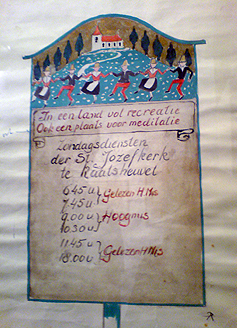 In een land vol recreatie
Ook een plaats voor meditatie
Zondagsdiensten
der St. Jozefkerk
te Kaatsheuvel
6.45 u } Gelezen H Mis
7.45 u
9.00 u } Hoogmis
10.30 u
11.45 u } Gelezen H Mis
18.00 u